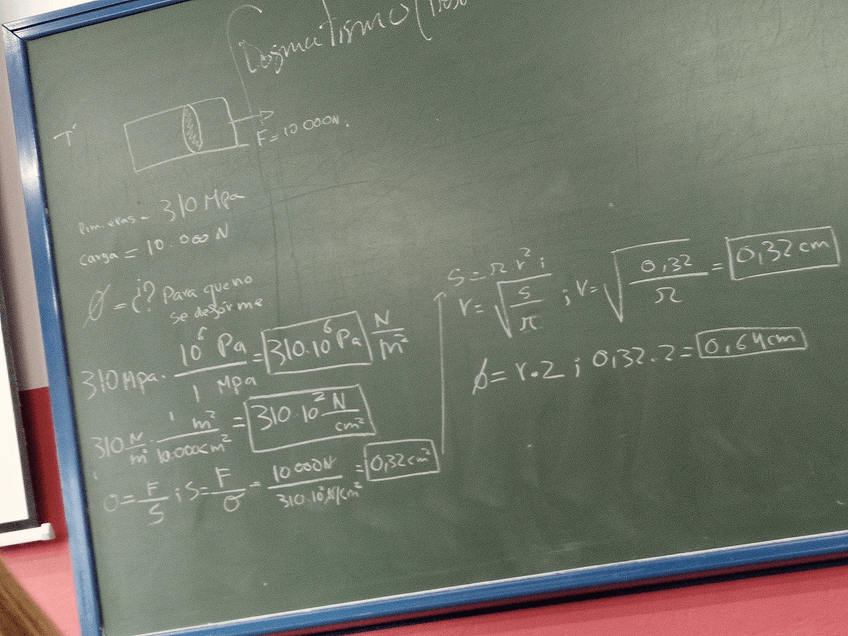 Dogmatismo
T
F = 10 000N.
lim. elas = 310 MPa
carga = 10.000 N
Ø = ¿? Para que no
se deforme
310 MPa · 10⁶ Pa / 1 MPa = 310·10⁶ Pa N/m²
310 N/m² · 1 m² / 10.000 cm² = 310·10² N/cm²
σ = F/S ; S = F/σ = 10 000N / 310·10² N/cm² = 0,32 cm²
S = π r² ;
r = √(S/π) ; r = √(0,32/π) = 0,32 cm
Ø = r·2 ; 0,32·2 = 0,64 cm